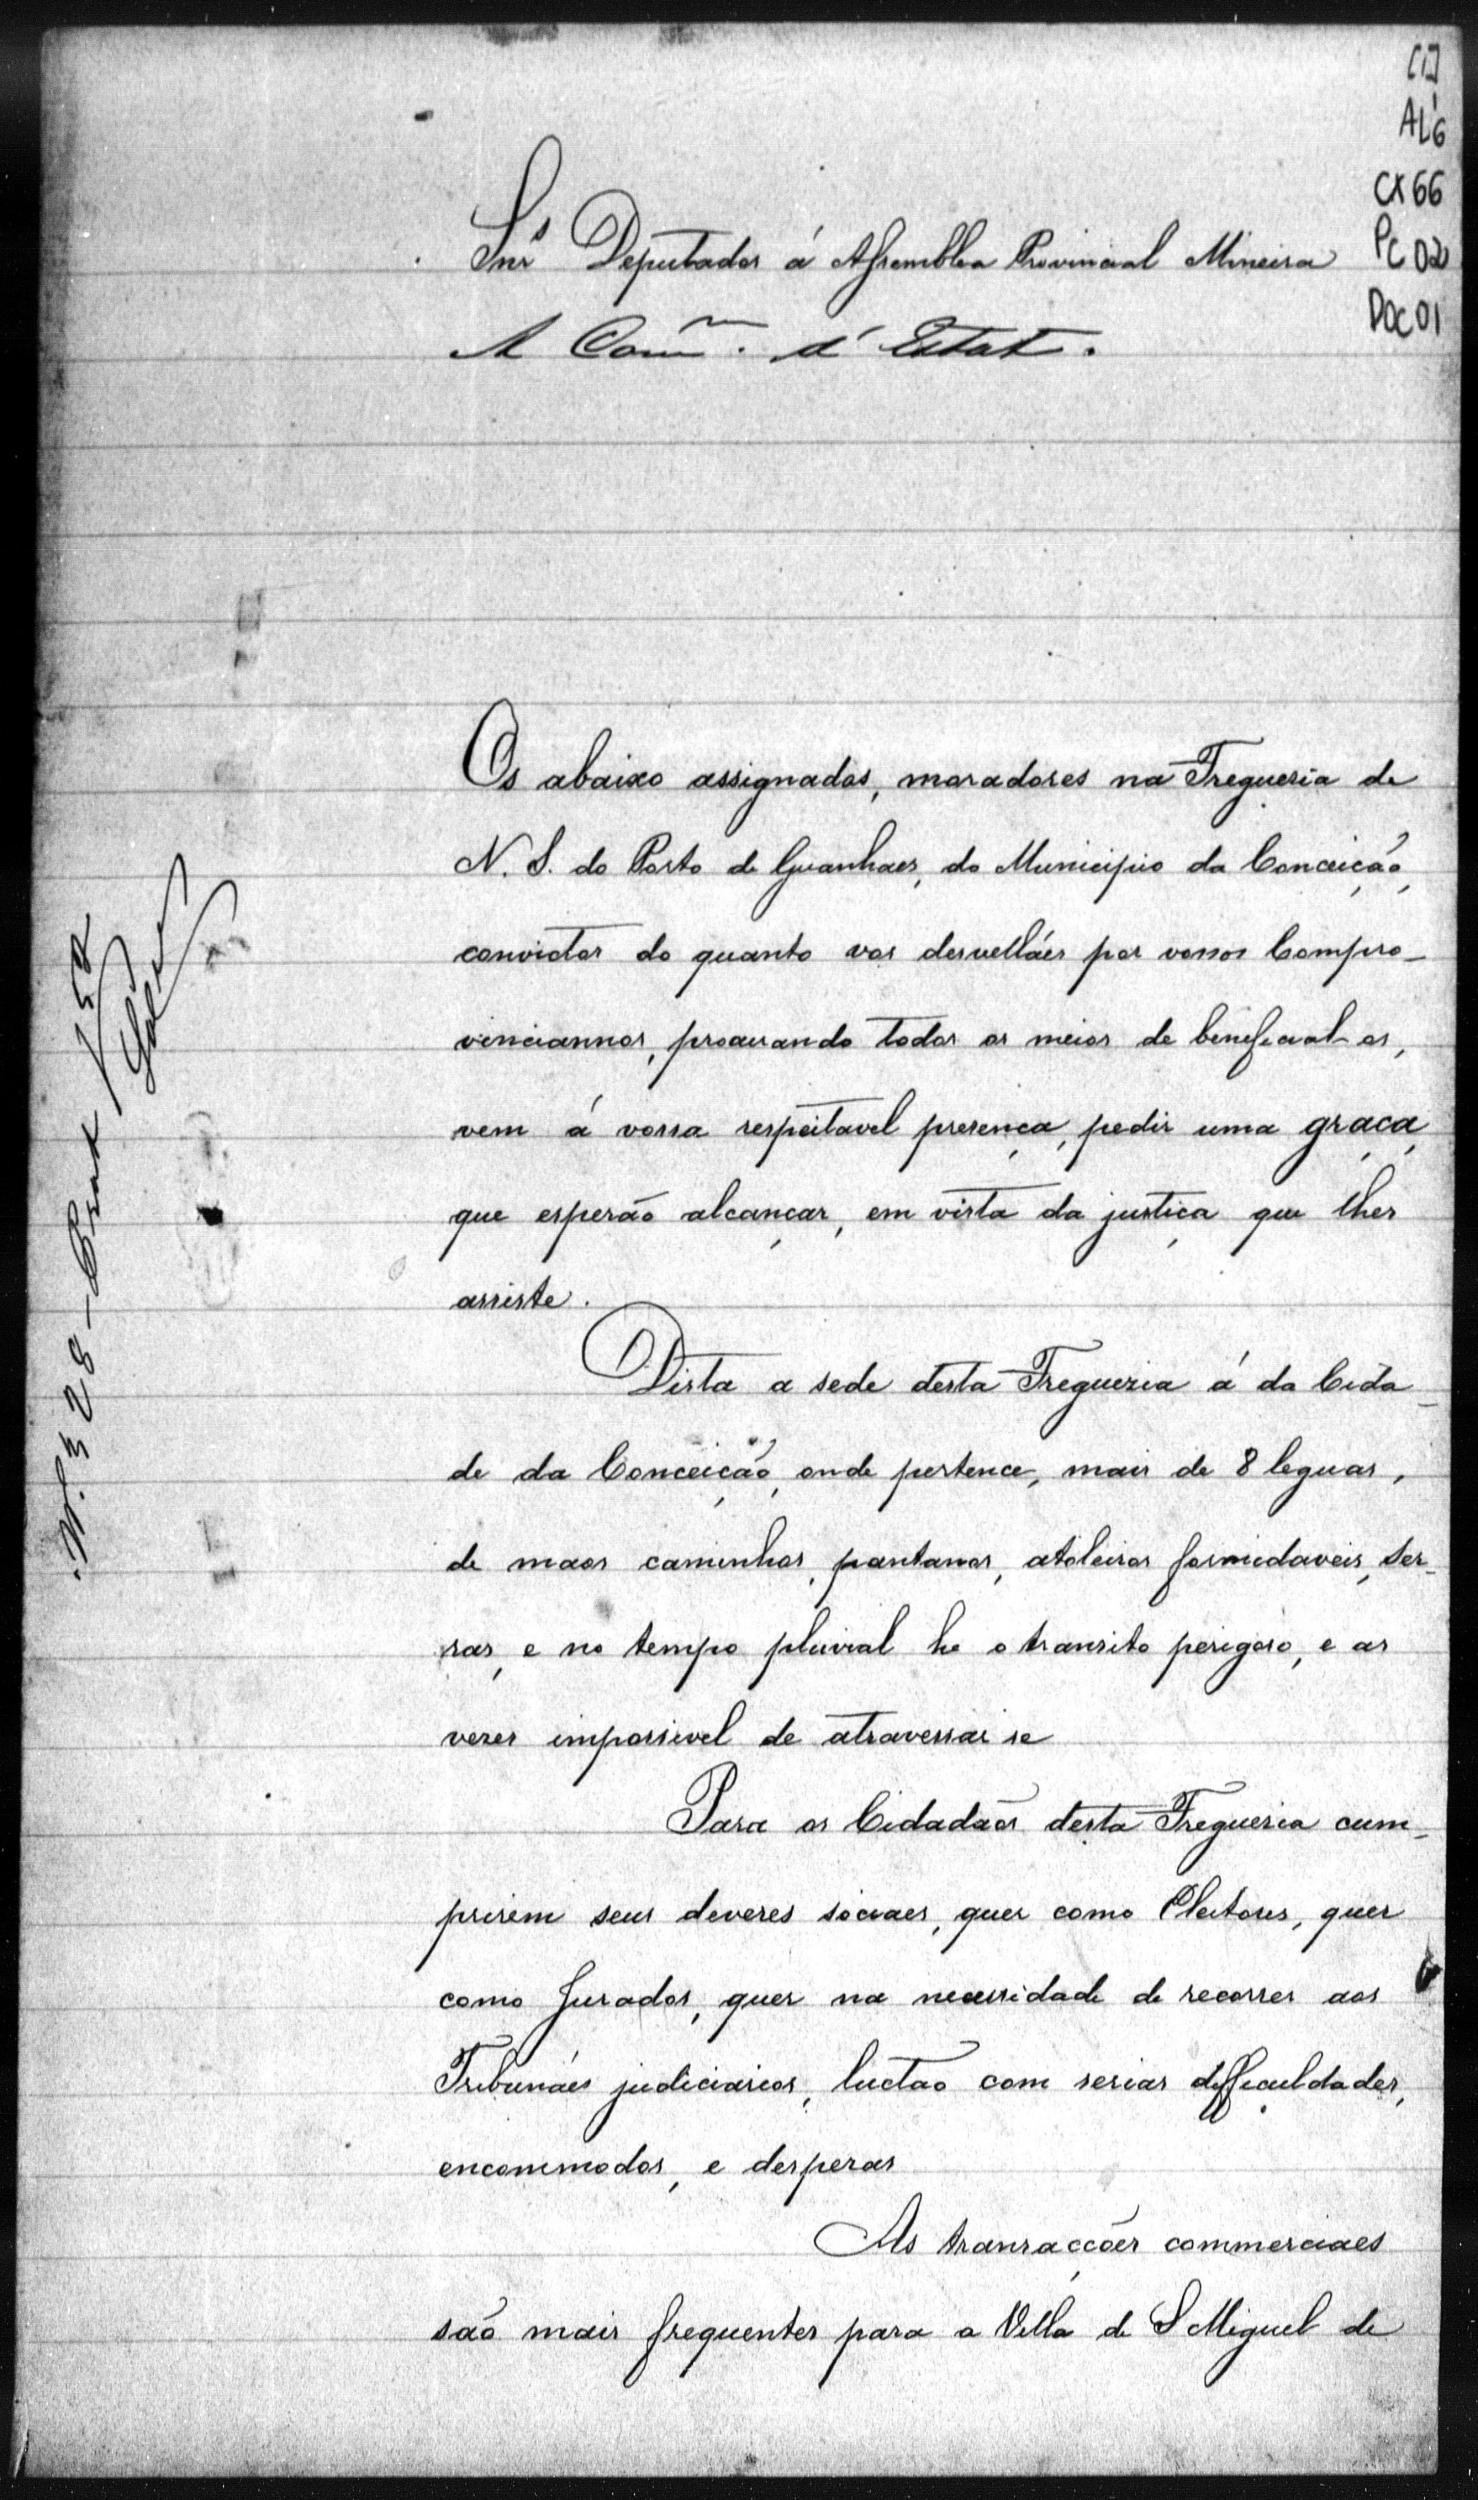 [1]
AL6
CX66
PC 02
DOC 01
Snrs Deputados á Assemblea Provincial Mineira
A Comm. d' Estat.
Os abaixo assignados, moradores na Fregueria de
N. S. do Porto de Guanhaes, do Municipio da Conceição,
convictos do quanto vos desvelláes por vossos Compro-
vinciannos, procurando todos os meios de beneficial-os,
vem á vossa respeitavel presença, pedir uma graça,
que esperão alcançar, em vista da justiça que lhes
assiste.
Dista a sede desta Freguezia á da Cida-
de da Conceição, onde pertence, mais de 8 leguas,
de maos caminhos, pantanos, atoleiros formidaveis, ser-
ras, e no tempo pluvial he o transito perigoso, e as
vezes impossivel de atravessar se
Para os Cidadãos desta Freguezia cum-
prirem seus deveres sociaes, quer como Eleitores, quer
como Jurados, quer na necessidade de recorrer aos
Tribunáes judiciarios, luctão com serias difficuldades,
encommodos, e despezas
As transacções commerciaes
são mais frequentes para a Villa de S Miguel de